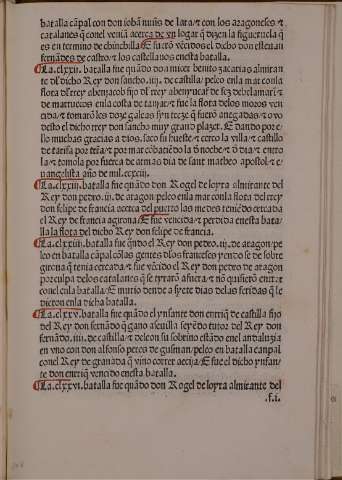 batalla cãpal con don johã nuñs de lara/⁊ con los aragoneses ⁊
catalanes q̃ conel veniã acerca de vn logar q̃ dizen la figueruela q̃
es en termino de chinchilla E fuerõ vẽcidos el dicho don esteuan
fernãdes de castro/⁊ los castellanos enesta batalla.
La.clxxii. batalla fue quãdo do a micer benito zacarias almiran
te dl dicho Rey don sancho.iiij. de castilla/peleo enla mar conla
flota dl rrey abenjacob fijo dl rrey abenyucaf de
de marruecos enla costa de tanjar/⁊ fue la flota delos moros ven
cida/⁊ tomarõ les doze galeas ⁊ treze q̃ fuerõ anegadas/⁊ o vo
desto el dicho rrey don sancho muy grand plazer. E dando por e-
llo muchas gracias a dios.saco su hueste/⁊ cerco la villa/⁊ castillo
de tarifa por trr̃a/⁊ por mar cõbatiẽdo la õ noche/⁊ õ dia/⁊ entro
la/⁊ tomola por fuerca de armas dia de sant matheo apostol/⁊ e-
uangelista año de mil.ccxcii.
La.clxxiii. batalla fue quando don Rogel de loyra almirante del
Rey don pedro.iij. de aragon/peleo enla mar conla flota del rrey
don felipe de francia acerca del puerto las medes teniẽdo cercada
el Rey de francia a girona/ E fue vencida/⁊ perdida enesta bata/
lla la flota del dicho Rey don felipe de francia.
La.clxxiiii. batalla fue qñdo el Rey don pedro.iij. de aragon/pe
leo en batalla cãpal cõlas gentes dlos franceses yendo se de sobre
girona q̃ tenia cercada/⁊ fue vẽcido el Rey don pedro de aragon
por culpa delos catalanes q̃ se tyrarõ afuera/⁊ no quisierõ entrar
conel enla batalla/E murio dende a syete dias de las feridas q̃ le
dieron enla dicha batalla.
La.clxxv. batalla fue quãdo el ynfante don enrriq̃ de castilla fijo
del Rey don fernãdo q̃ gano a seuilla seyẽdo tutor del Rey don
fernãdo.iiij. de castilla/⁊ deleon su sobrino estãdo enel andaluzia
en vno con don alfonso peres de gusman/peleo en batalla canpal
conel Rey de granada q̃ vino correr aecija/E fue el dicho ynfan-
te don enrriq̃ vencido enesta batalla.
La.clxxvi. batalla fue quãdo don Rogel de loyra almirante del
.f.i.